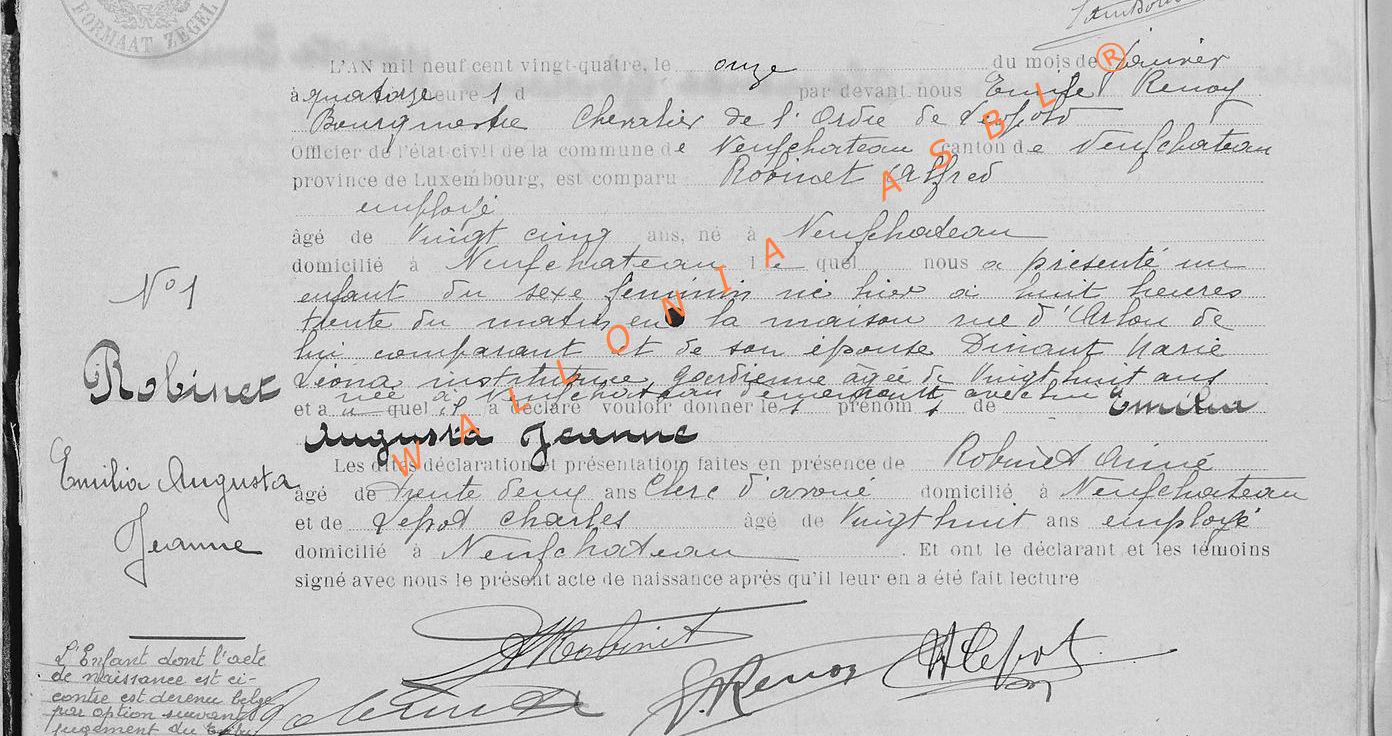 FORMAAT ZEGEL
L'AN mil neuf cent vingt-quatre, le onze du mois de Janvier
à quatorze heure s d par devant nous Emile Renoy
Bourgmestre Chevalier de l'Ordre de Léopold
Officier de l'état-civil de la commune de Neufchateau canton de Neufchateau
province de Luxembourg, est comparu Robinet Alfred
employé
âgé de Vingt cinq ans, né à Neufchateau
domicilié à Neufchateau le quel nous a présenté un
enfant du sexe féminin né hier à huit heures
trente du matin en la maison rue d'Arlon de
lui comparant et de son épouse Dinant Marie
Léona institutrice gardienne âgée de Vingt huit ans
née à Neufchateau demeurant avec lui
et a u quel il a déclaré vouloir donner les prénoms de Emilia
Augusta Jeanne
Les dites déclaration et présentation faites en présence de Robinet Aimé
âgé de Trente deux ans Clerc d'avoué domicilié à Neufchateau
et de Lepot Charles âgé de Vingt huit ans employé
domicilié à Neufchateau. Et ont le déclarant et les témoins
signé avec nous le présent acte de naissance après qu'il leur en a été fait lecture
No 1
Robinet
Emilia Augusta
Jeanne
L'Enfant dont l'acte
de naissance est ci-
contre est devenu belge
par option suivant
jugement du
ARobinet
E. Renoy
Lepot
Robinet
WALLONIA ASBL ®